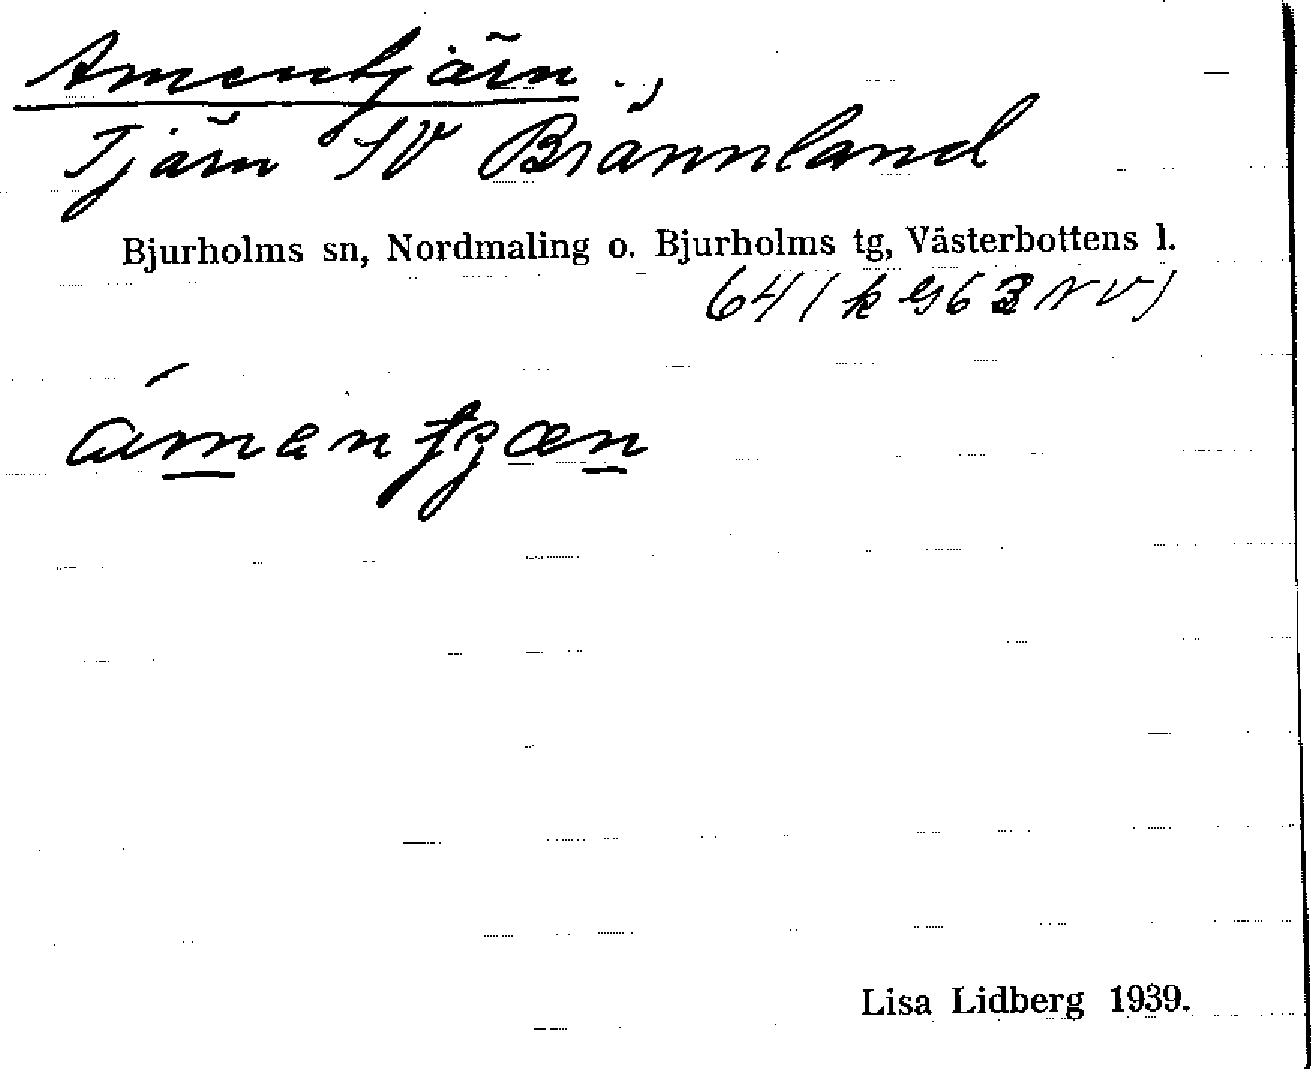 Amentjärn.,
Tjärn SV Brännland
Bjurholms sn, Nordmaling o. Bjurholms tg, Västerbottens l.
64 (k
Lisa Lidberg 1939.